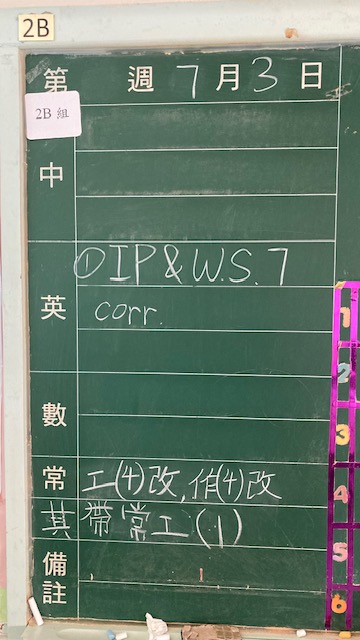 2B
第 週 7月3日
2B 組
中
①IP&W.S.7
英
corr.
數
常 工(4)改,作(4)改
其 帶常工(1)
備註
1
2
3
4
5
6